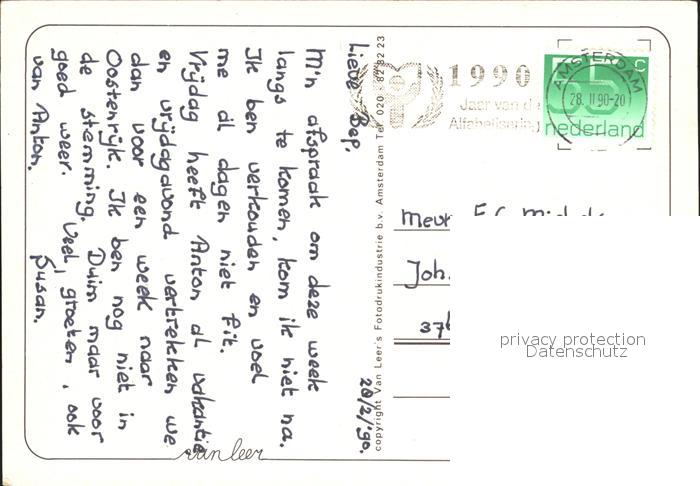 28/2/'90.
Lieve Bep,
M'n afspraak om deze week
langs te komen, kom ik niet na.
Ik ben verkouden en voel
me al dagen niet fit.
Vrijdag heeft Anton al vakantie
en vrijdagavond vertrekken we
dan voor een week naar
Oostenrijk. Ik ben nog niet in
de stemming. Duim maar voor
goed weer. Veel groeten, ook
van Anton. Susan.
copyright Van Leer's Fotodrukindustrie b.v. Amsterdam Tel. 020 - 82 82 23
van leer
1990
Jaar van de
Alfabetisering
AMSTERDAM
28.II.90-20
55 c
nederland
Mevr. F.C.
Joh.
37
privacy protection
Datenschutz